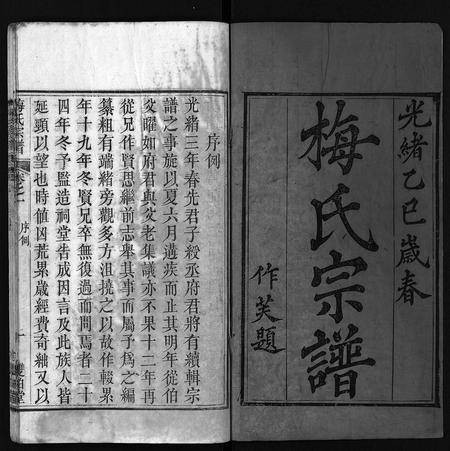 光緒乙巳歲春
梅氏宗譜
作芙題
序例
光緒三年春先君子縠丞府君將有續輯宗
譜之事旋以夏六月遘疾而止其明年從伯
父曜如府君與父老集議亦不果十二年再
從兄作賢思繼前志舉其事而屬予為之編
纂粗有端緒旁觀多方沮撓之以故作輟累
年十九年冬賢兄卒無復過而問焉者二十
四年冬予監造祠堂告成因言及此族人皆
延頸以望也時值凶荒累歲經費奇絀又以
梅氏宗譜
卷之一
序例
一
雙柏堂